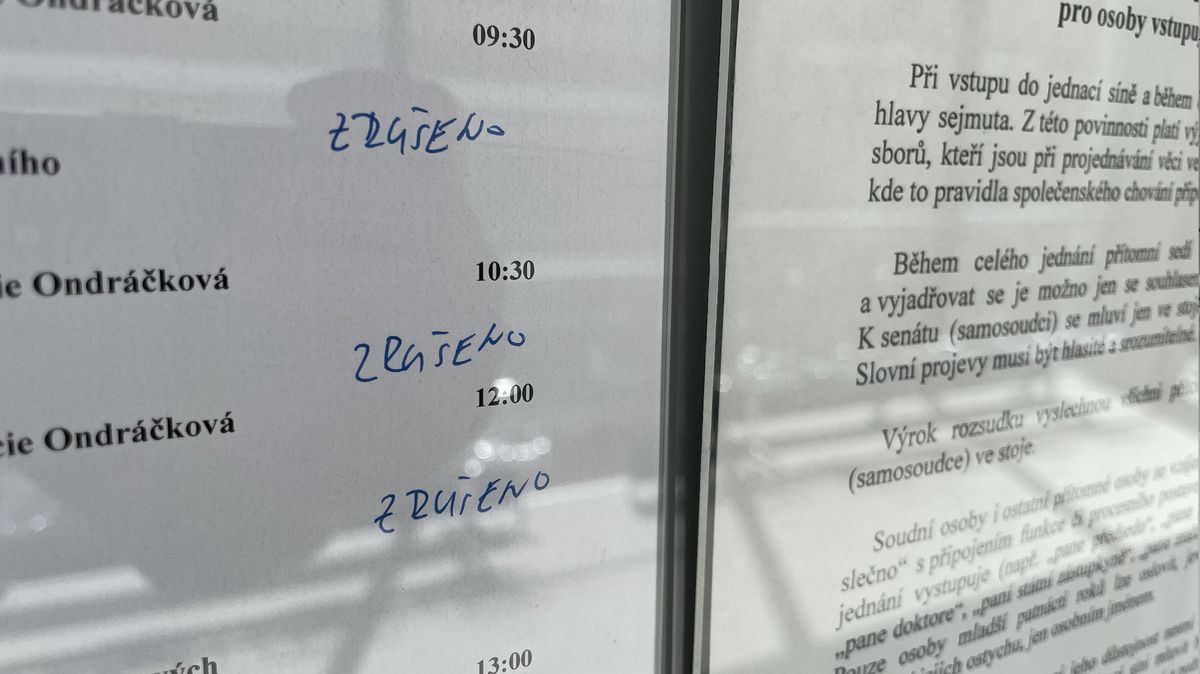 Ondráčková
09:30
ZRUŠENO
ního
ie Ondráčková
10:30
ZRUŠENO
12:00
cie Ondráčková
ZRUŠENO
ových
13:00
pro osoby vstupu
Při vstupu do jednací síně a během
hlavy sejmuta. Z této povinnosti platí vý
sborů, kteří jsou při projednávání věci ve
kde to pravidla společenského chování přip
Během celého jednání přítomní sedí
a vyjadřovat se je možno jen se souhlasem
K senátu (samosoudci) se mluví jen ve stoje
Slovní projevy musí být hlasité a srozumitelné.
Výrok rozsudku vyslechnou všichni přít
(samosoudce) ve stoje.
Soudní osoby i ostatní přítomné osoby se
slečno“ s připojením funkce či procesního postavení
jednání vystupuje (např. „pane předsedo“, „pane
„pane doktore“, „paní státní zástupkyně“, „pane
Pouze osoby mladší patnácti roků lze oslovit,
ostychu, jen osobním jménem.
jeho důstojnost
síni mluvit